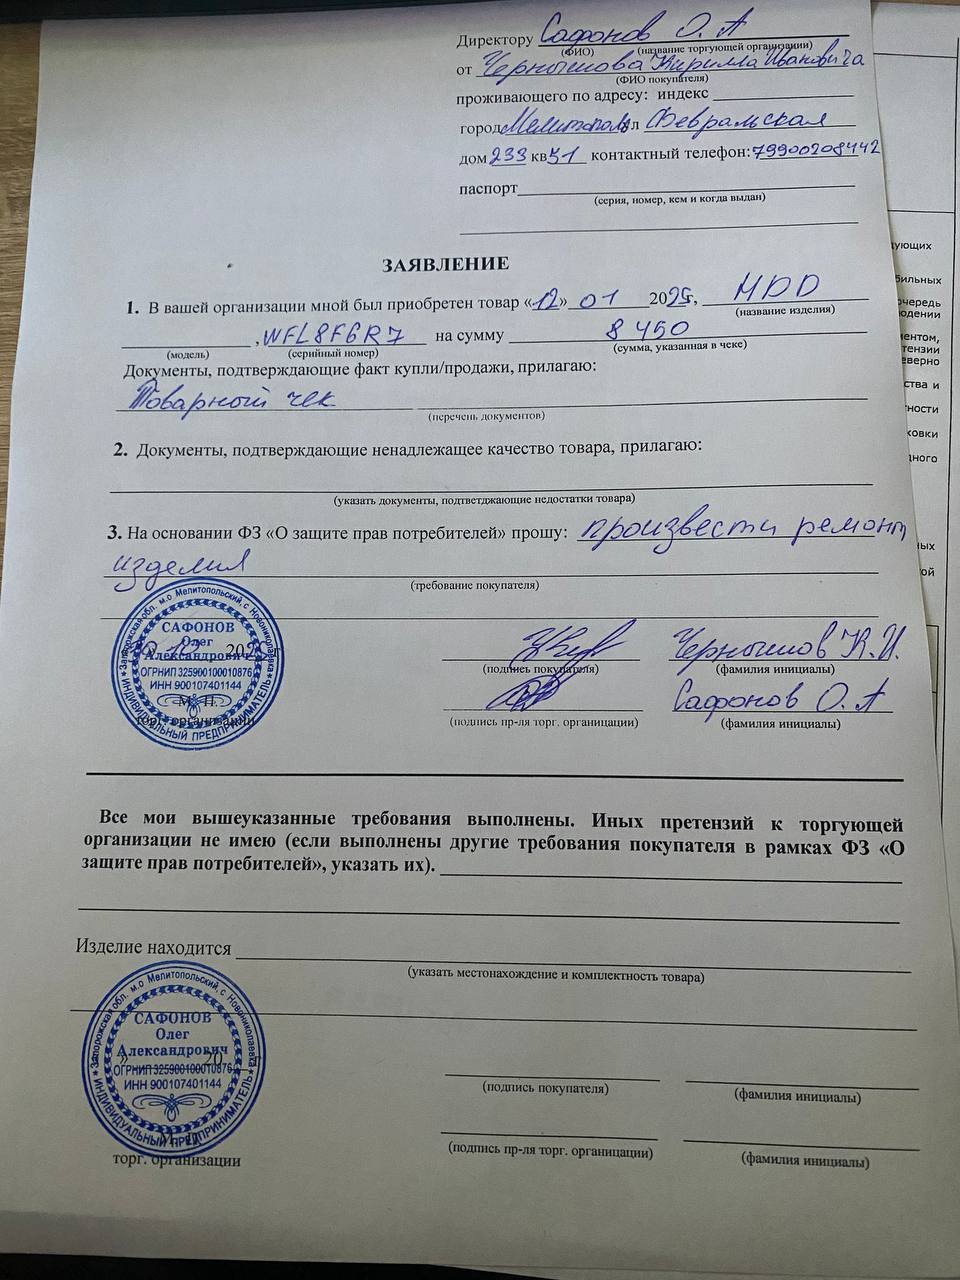 Директору Сафонов О. А
(ФИО) (название торгующей организации)
от Чернышова Кирилла Ивановича
(ФИО покупателя)
проживающего по адресу: индекс
город Мелитополь ул Февральская
дом 233 кв 51 контактный телефон: 79900208442
паспорт
(серия, номер, кем и когда выдан)
ЗАЯВЛЕНИЕ
1. В вашей организации мной был приобретен товар «12» 01 2025, HDD
(название изделия)
, WFL8F6R7 на сумму 8 450
(модель) (серийный номер) (сумма, указанная в чеке)
Документы, подтверждающие факт купли/продажи, прилагаю:
Товарный чек
(перечень документов)
2. Документы, подтверждающие ненадлежащее качество товара, прилагаю:
(указать документы, подтветджающие недостатки товара)
3. На основании ФЗ «О защите прав потребителей» прошу: произвести ремонт
изделия
(требование покупателя)
Запорожская обл. м.о Мелитопольский, с. Новониколаевка
САФОНОВ
Олег
Александрович
ОГРНИП 325900100010876
ИНН 900107401144
ИНДИВИДУАЛЬНЫЙ ПРЕДПРИНИМАТЕЛЬ
М. П.
торг. организации
Чернышов К. И.
(подпись покупателя) (фамилия инициалы)
Сафонов О. А
(подпись пр-ля торг. органицации) (фамилия инициалы)
Все мои вышеуказанные требования выполнены. Иных претензий к торгующей
организации не имею (если выполнены другие требования покупателя в рамках ФЗ «О
защите прав потребителей», указать их).
Изделие находится
(указать местонахождение и комплектность товара)
Запорожская обл. м.о Мелитопольский, с. Новониколаевка
САФОНОВ
Олег
Александрович
» 20
ОГРНИП 325900100010876
ИНН 900107401144
ИНДИВИДУАЛЬНЫЙ ПРЕДПРИНИМАТЕЛЬ
М. П.
торг. организации
(подпись покупателя) (фамилия инициалы)
(подпись пр-ля торг. органицации) (фамилия инициалы)